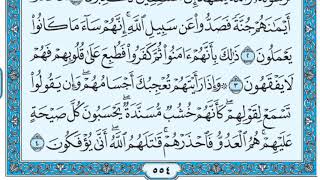 أَيْمَٰنَهُمْ جُنَّةً فَصَدُّوا۟ عَن سَبِيلِ ٱللَّهِ ۚ إِنَّهُمْ سَآءَ مَا كَانُوا۟
يَعْمَلُونَ ٢ ذَٰلِكَ بِأَنَّهُمْ ءَامَنُوا۟ ثُمَّ كَفَرُوا۟ فَطُبِعَ عَلَىٰ قُلُوبِهِمْ فَهُمْ
لَا يَفْقَهُونَ ٣ ۞ وَإِذَا رَأَيْتَهُمْ تُعْجِبُكَ أَجْسَامُهُمْ ۖ وَإِن يَقُولُوا۟
تَسْمَعْ لِقَوْلِهِمْ ۖ كَأَنَّهُمْ خُشُبٌ مُّسَنَّدَةٌ ۖ يَحْسَبُونَ كُلَّ صَيْحَةٍ
عَلَيْهِمْ ۚ هُمُ ٱلْعَدُوُّ فَٱحْذَرْهُمْ ۚ قَٰتَلَهُمُ ٱللَّهُ ۖ أَنَّىٰ يُؤْفَكُونَ ٤
٥٥٤